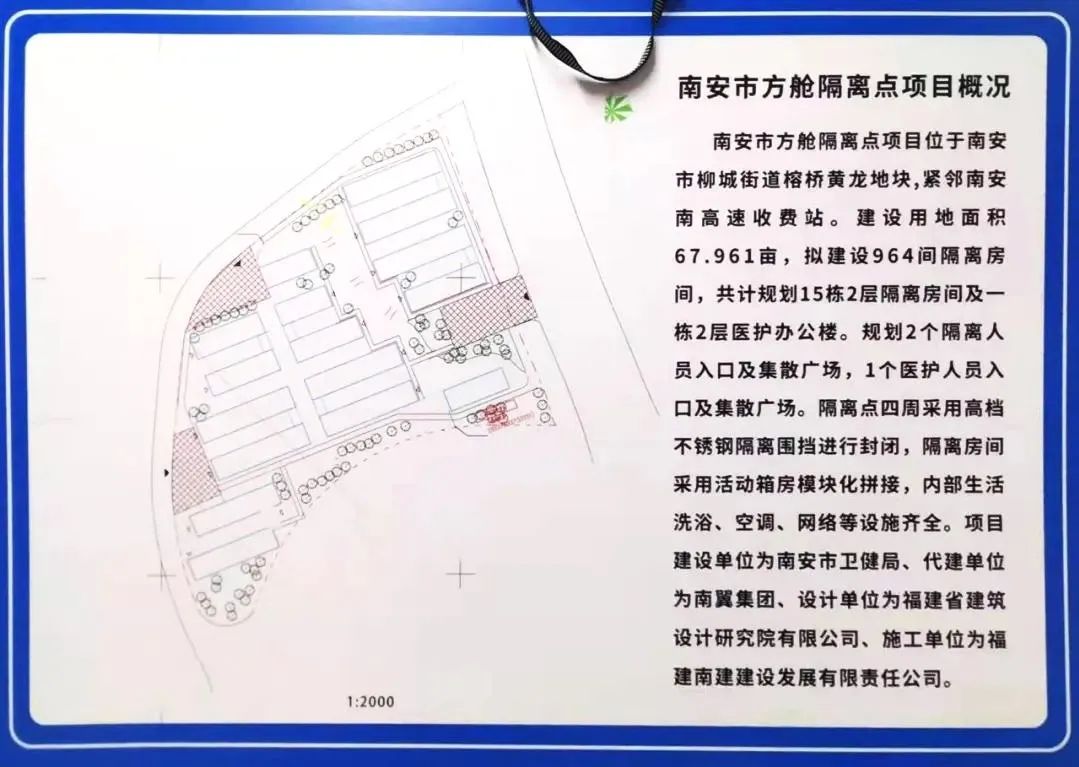 南安市方舱隔离点项目概况
南安市方舱隔离点项目位于南安
市柳城街道榕桥黄龙地块,紧邻南安
南高速收费站。建设用地面积
67.961亩，拟建设964间隔离房
间，共计规划15栋2层隔离房间及一
栋2层医护办公楼。规划2个隔离人
员入口及集散广场，1个医护人员入
口及集散广场。隔离点四周采用高档
不锈钢隔离围挡进行封闭，隔离房间
采用活动箱房模块化拼接，内部生活
洗浴、空调、网络等设施齐全。项目
建设单位为南安市卫健局、代建单位
为南翼集团、设计单位为福建省建筑
设计研究院有限公司、施工单位为福
建南建建设发展有限责任公司。
1:2000